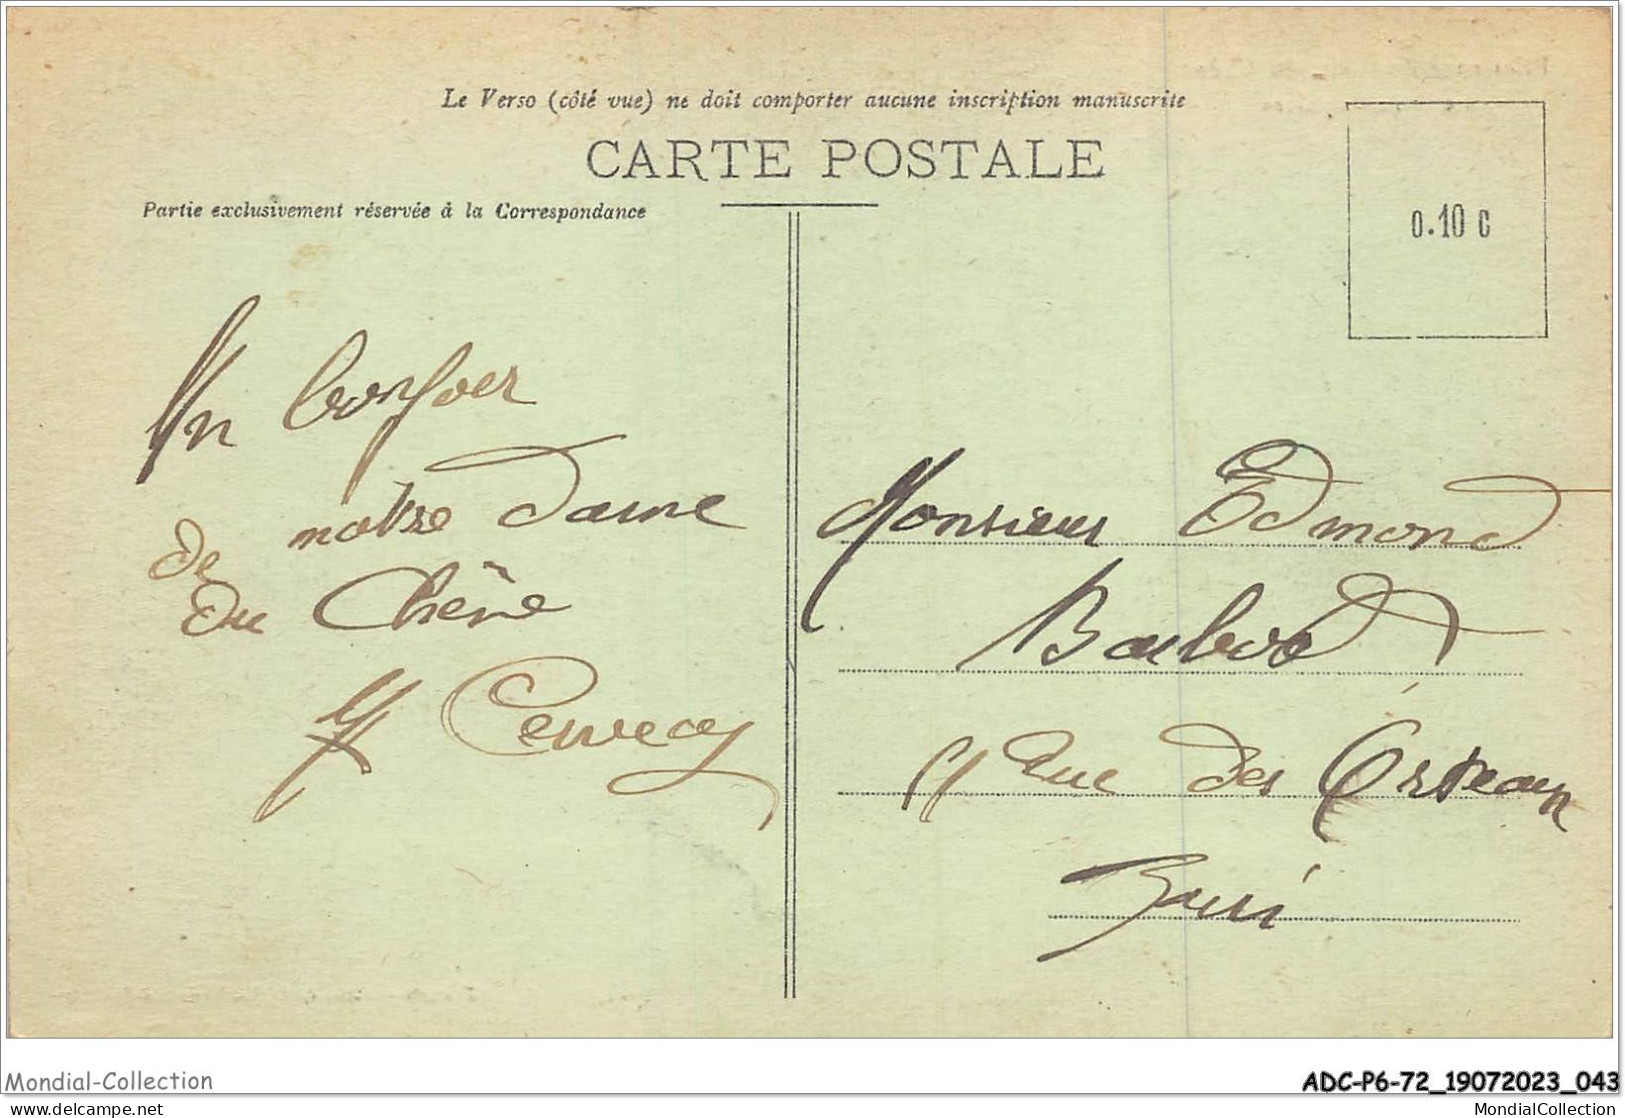 Le Verso (côté vue) ne doit comporter aucune inscription manuscrite
CARTE POSTALE
Partie exclusivement réservée à la Correspondance
0.10 c
Un bonjour
de notre Dame
du Chêne
Monsieur Edmond
Rue des Orteaux
Paris
Mondial-Collection
ADC-P6-72_19072023_043
delcampe.net
MondialCollection